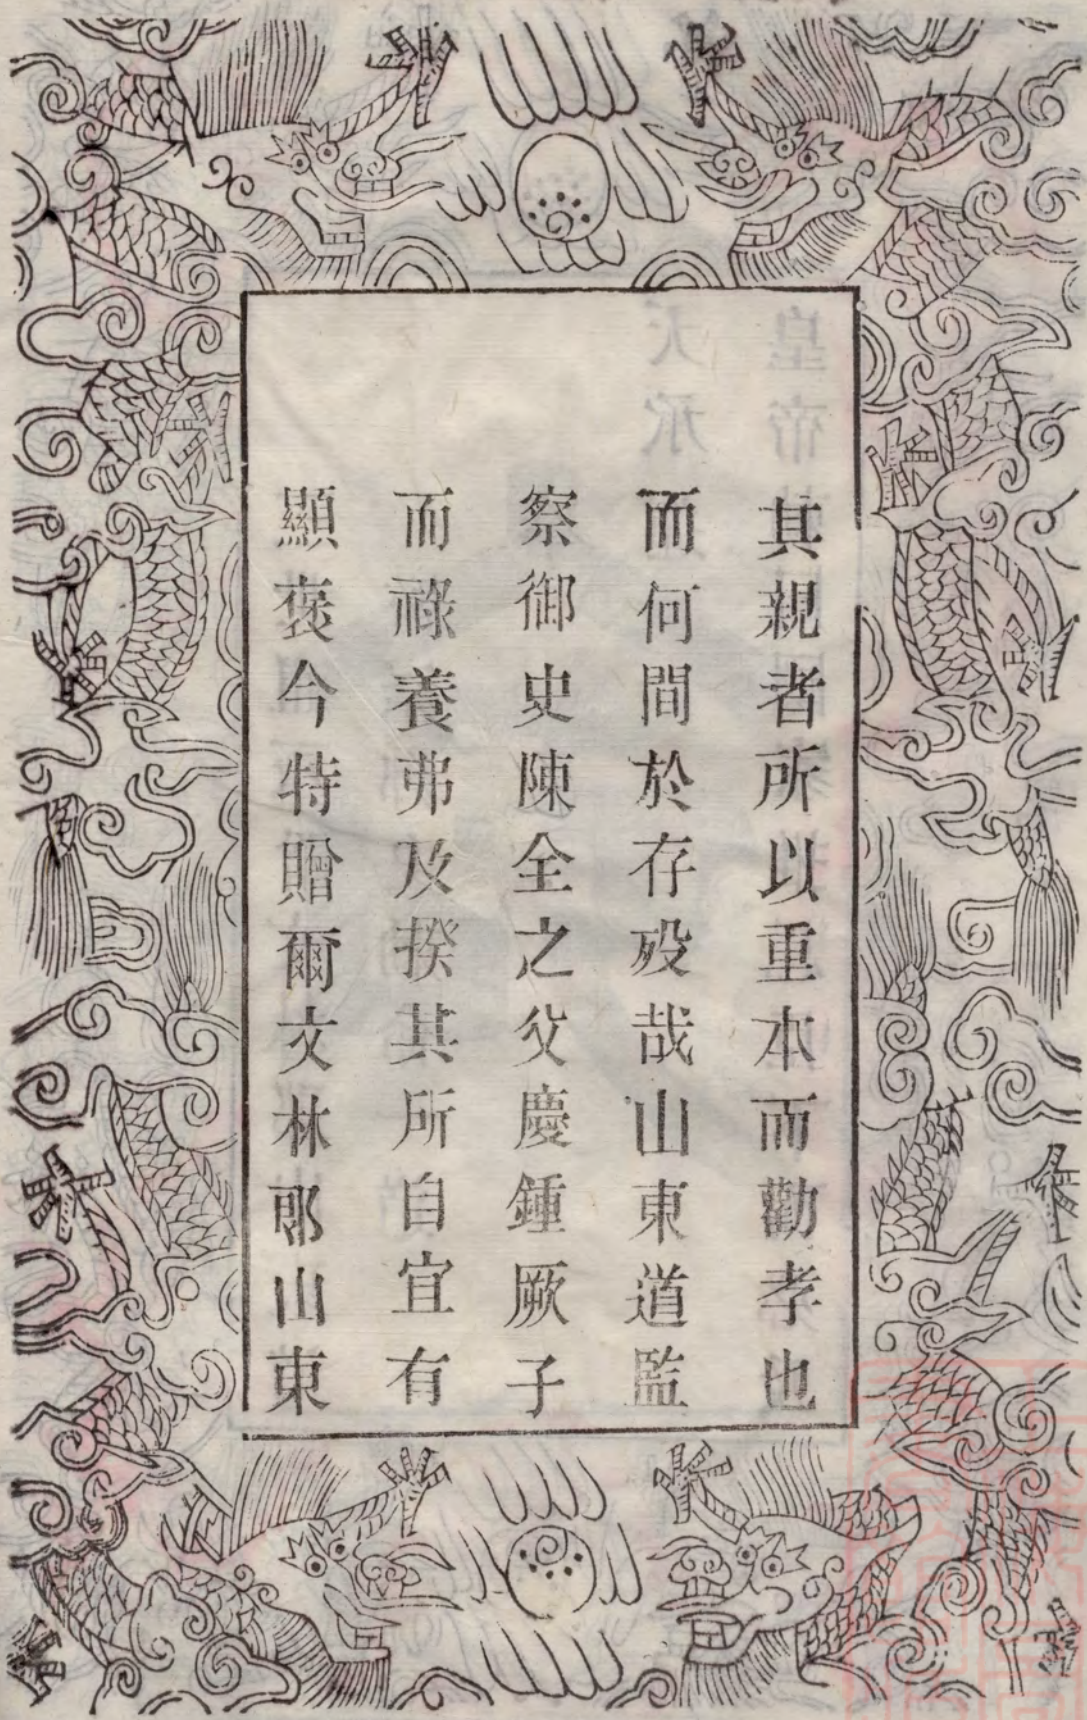 其親者所以重本而勸孝也
而何間於存歿哉山東道監
察御史陳全之父慶鍾厥子
而祿養弗及揆其所自宜有
顯褒今特贈爾文林郎山東